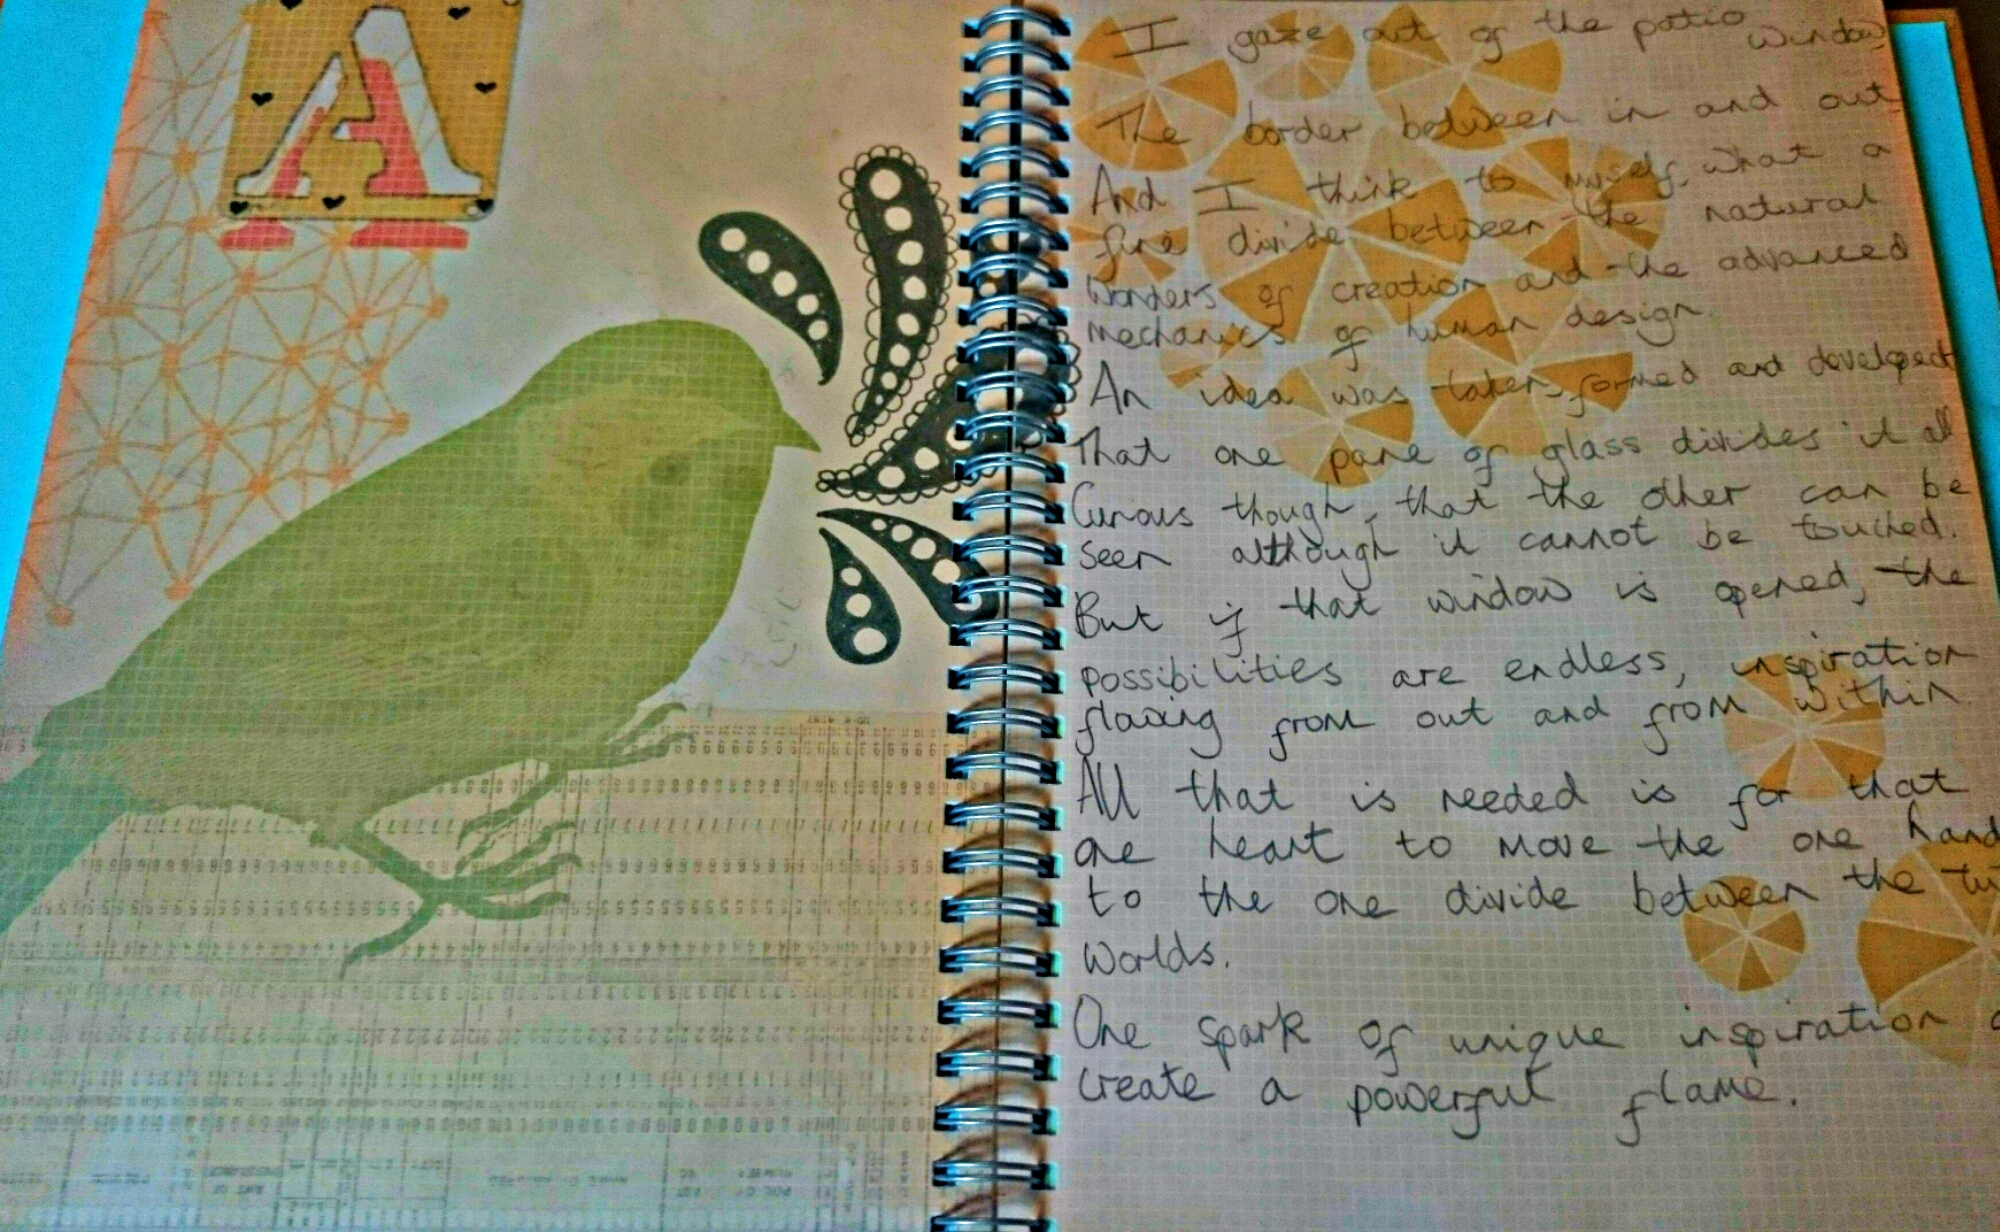 A
I gaze out of the patio window
The border between in and out
And I think to myself, what a
fine divide between the natural
wonders of creation and the advanced
mechanics of human design.
An idea was taken, formed and developed
That one pane of glass divides it all
Curious though, that the other can be
seen although it cannot be touched.
But if that window is opened, the
possibilities are endless, inspiration
flowing from out and from within
All that is needed is for that
one heart to move the one hand
to the one divide between the
worlds.
One spark of unique inspiration
create a powerful flame.